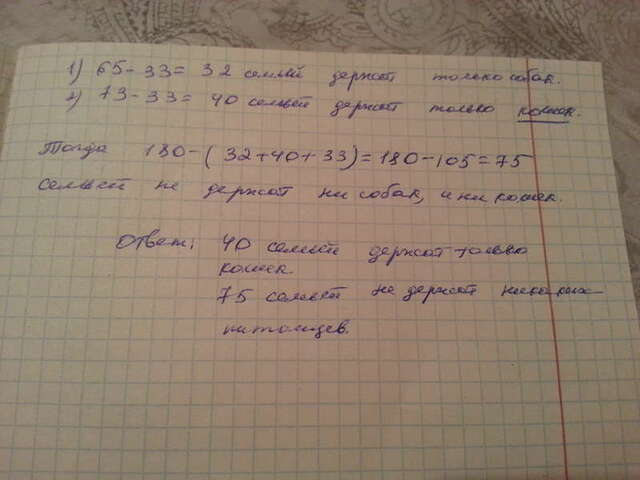 1) 65-33= 32 семьй держат только собак.
2) 73-33= 40 семьей держат только кошек.
Тогда 180-(32+40+33)=180-105=75
семьей не держат ни собак, и ни кошек.
Ответ: 40 семьй держат только
кошек.
75 семьй не держат никаких
питомцев.